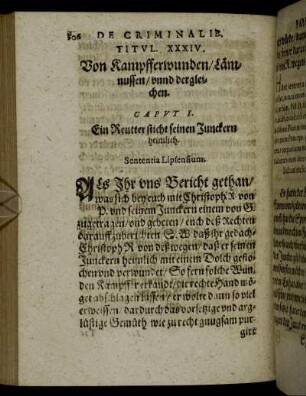 506 DE CRIMINALIB.
TITVL. XXXIV.
Von Kampfferwunden/Läm-
nussen/ vnnd derglei-
chen.
CAPVT I.
Ein Reutter sticht seinen Junckern
heimlich.
Sententia Lipsensium.
ALs Ihr vns Bericht gethan/
was sich bey euch mit Christoph R von
P. vnd seinem Junckern einem von G.
zugetragen/ vnd gebeten/ euch deß Rechten
darauff zuberichten. S. W. daß ihr gedach-
Christoph R von deßwegen/ daß er seinen
Junckern heimlich mit einem Dolch gesto-
chen vnd verwundet/ So fern solche Wun-
den Kampffer erkandt/ die rechte Hand mö-
get abschlagen lassen/ er wolte dann so viel
erweissen/ dardurch das vorsetzige vnd arg-
listige Gemüth wie zu recht gnugsam pur-
girt